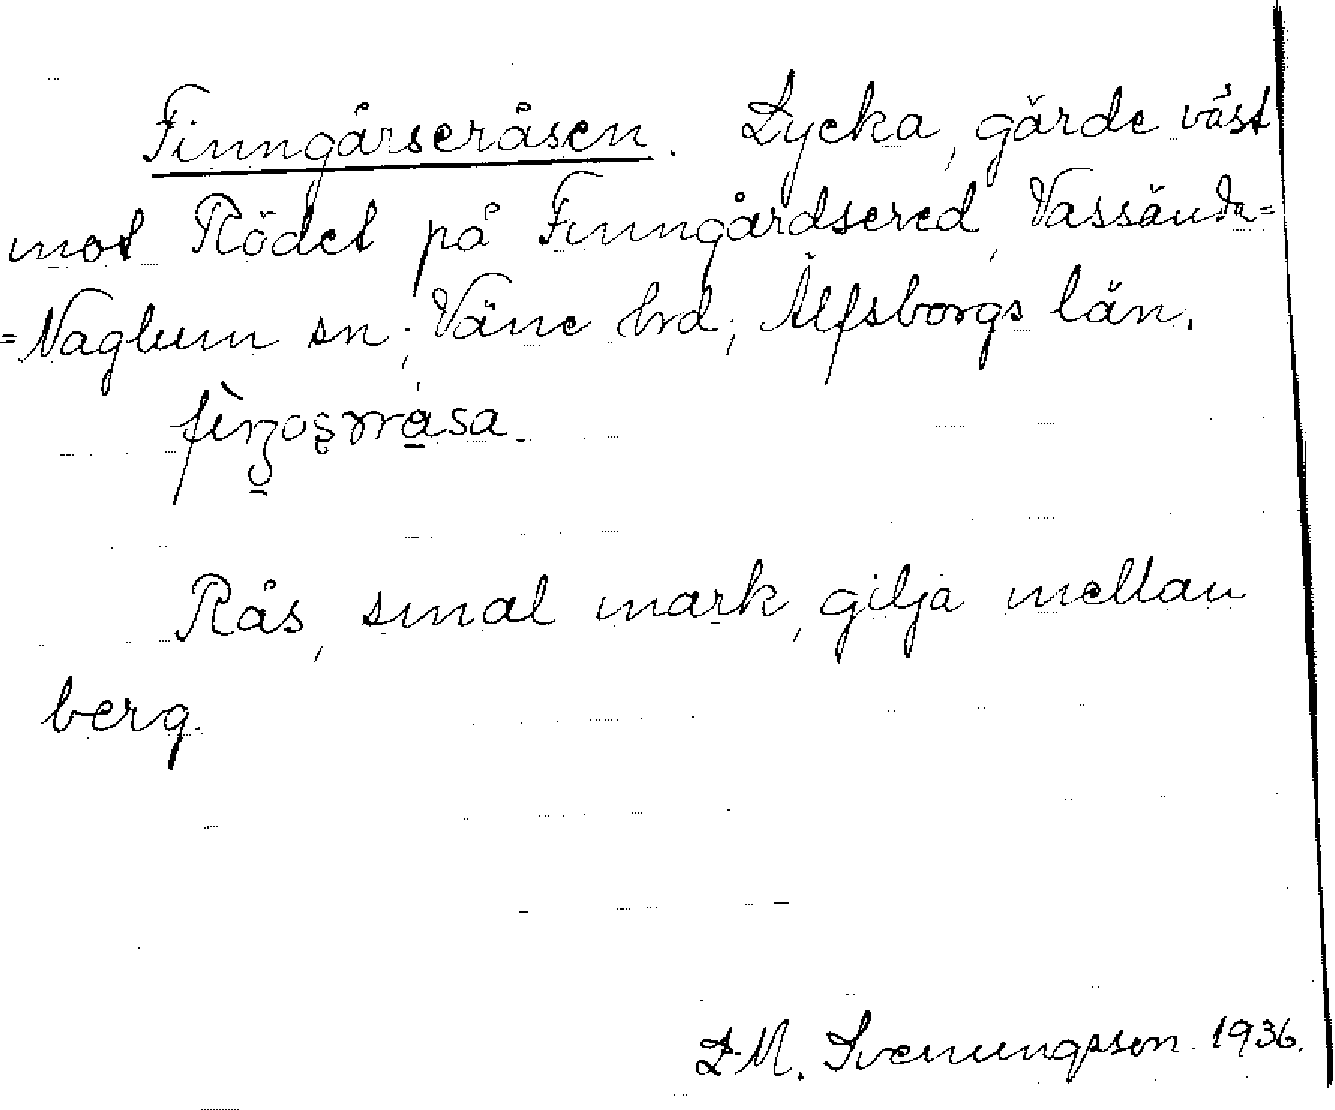 Finngårseråsen. Lycka, gärde väst
mot Rödet på Finngårdsered, Vassända=
=Naglum sn; Väne hrd; Älfsborgs län.
Rås, smal mark, gilja mellan
berg.
L.M. Svenungsson 1936.